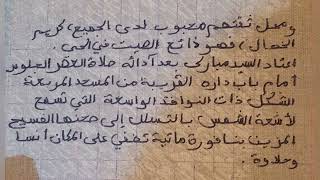 ومحل ثقتهم محبوب لدى الجميع، كريم
الخصال، فهو ذائع الصيت في الحي.
اعتاد السيد مبارك بعد أدائه صلاة العصر الجلوس
أمام باب داره القريبة من المسجد المربعة
الشكل ذات النوافذ الواسعة التي تسمح
لأشعة الشمس بالتسلل إلى صحنها الفسيح
المزين بنافورة مائية تضفي على المكان أنسا
وحلاوة.